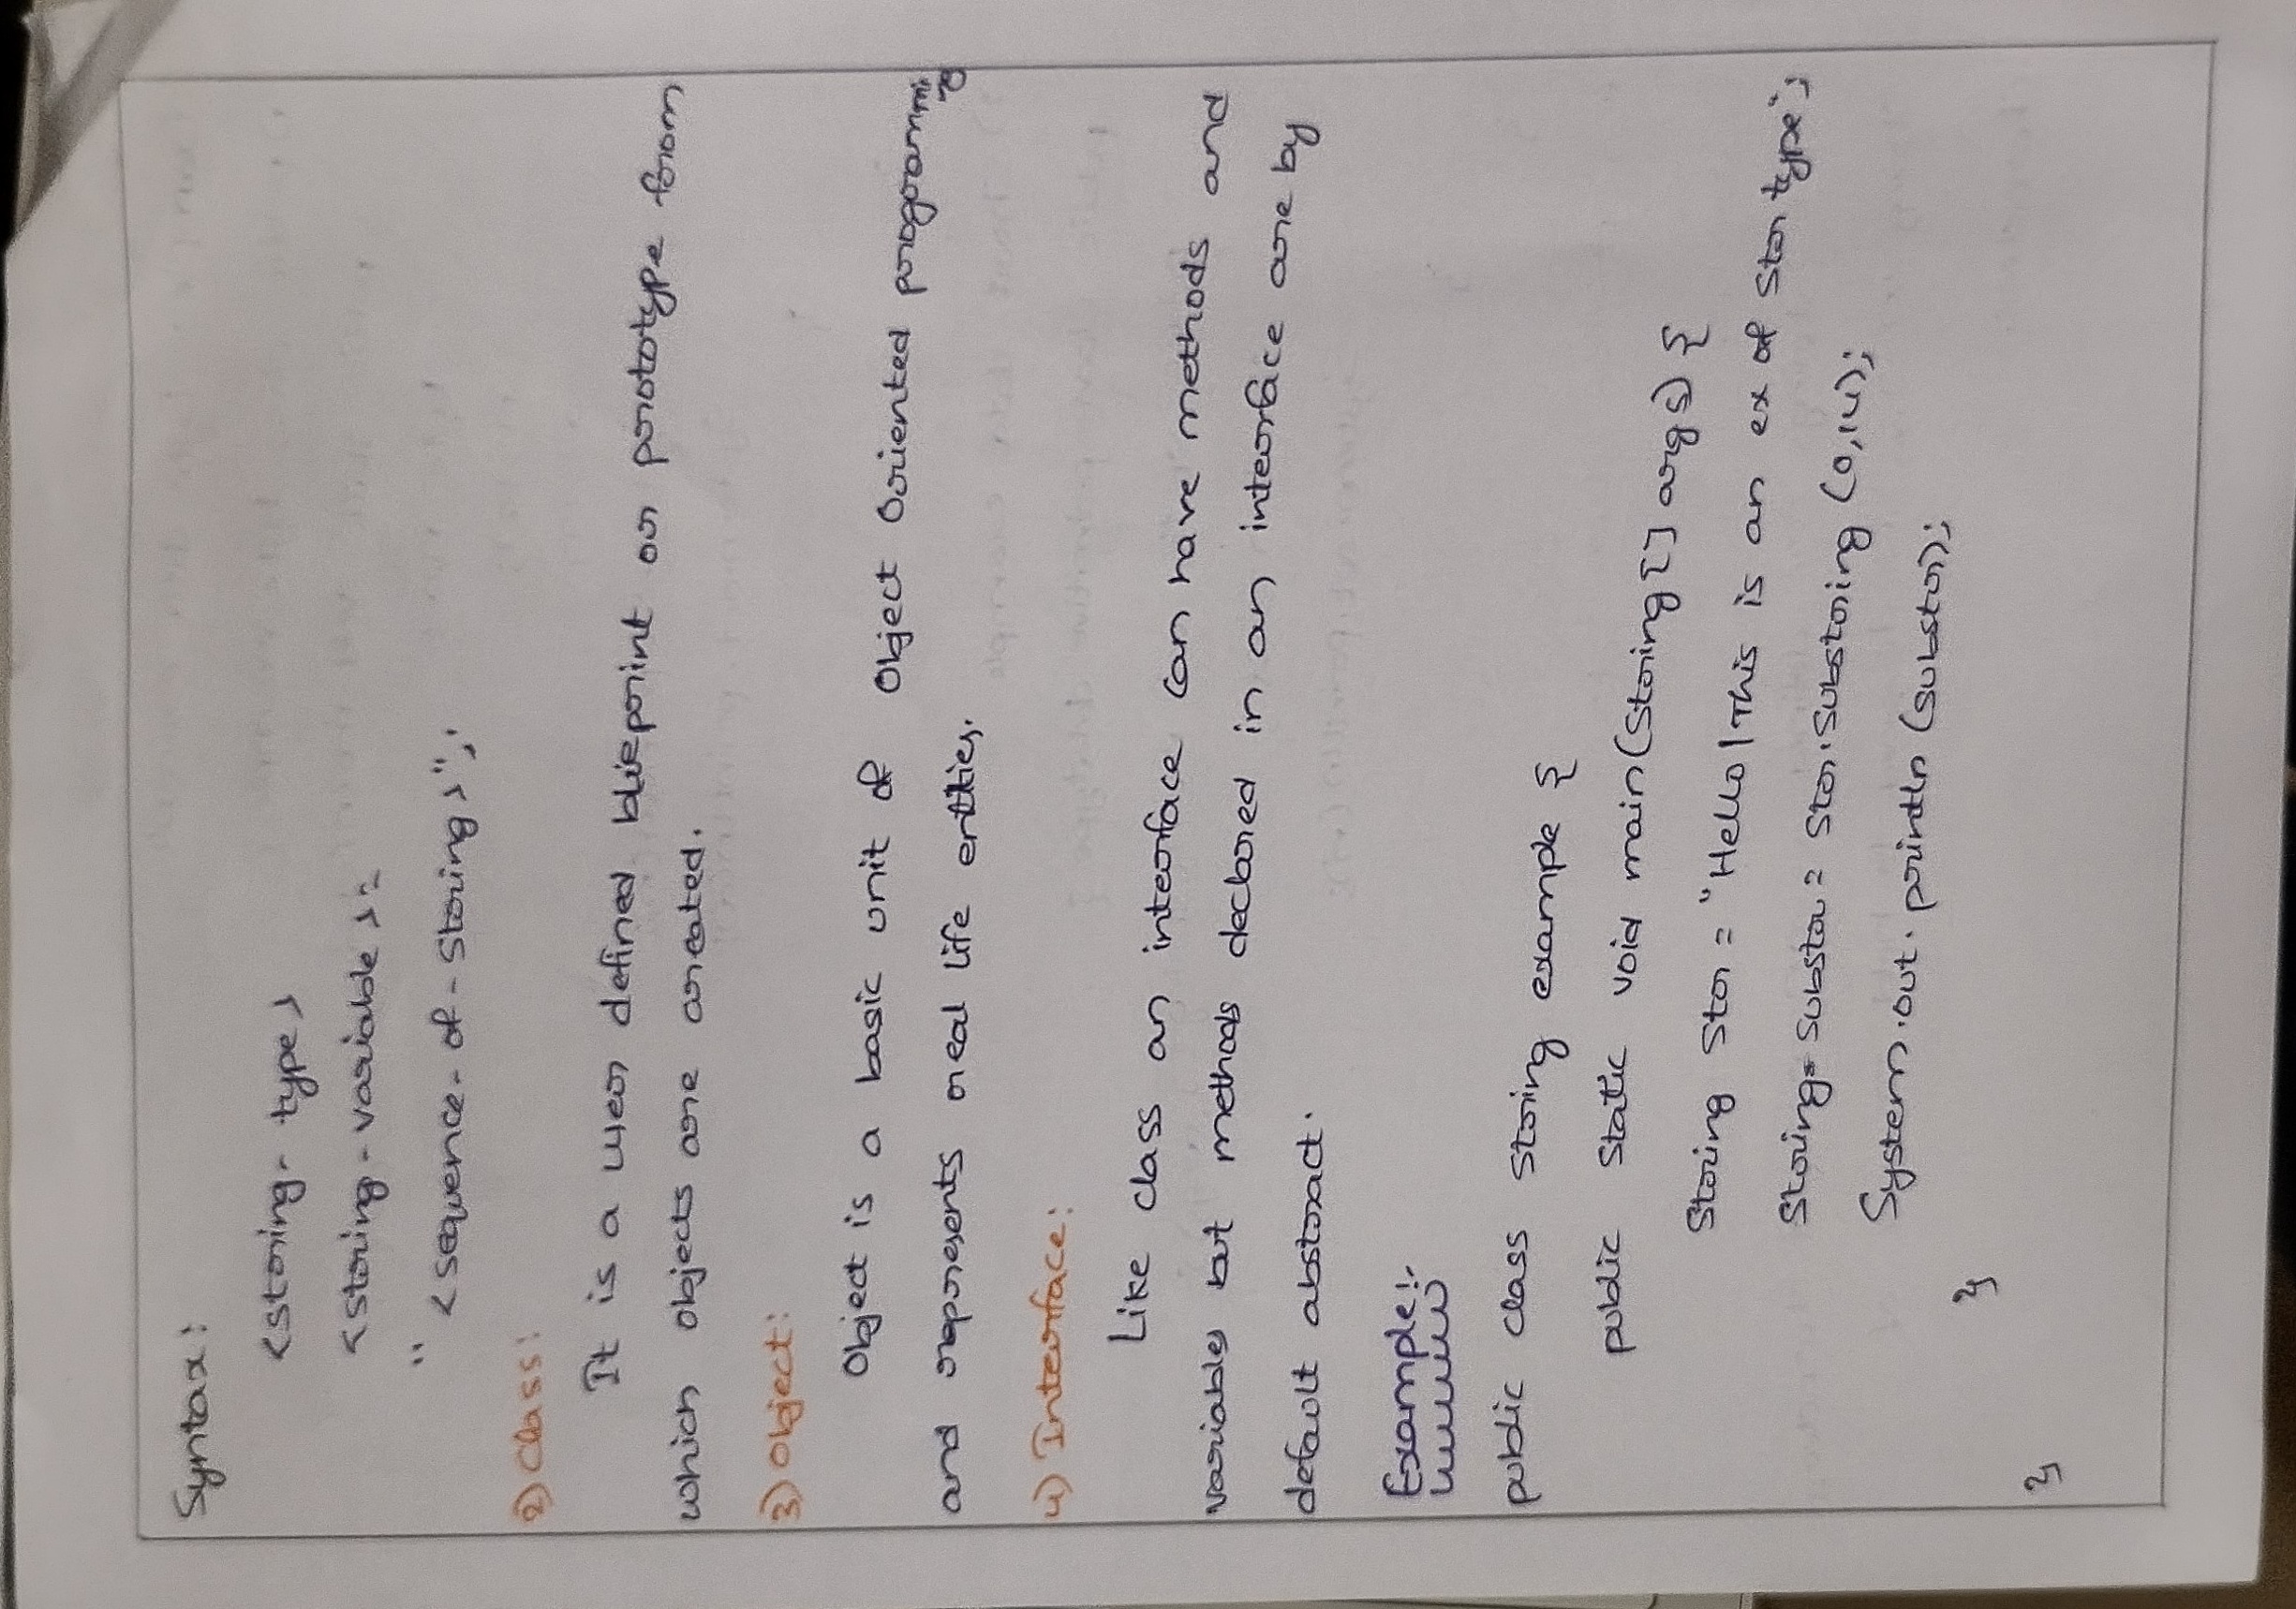 Syntax:
<string-type>
<string-variable>=
"
<sequence-of-string>";
2) class:
It is a user defined blueprint or prototype from
which objects are created.
3) object:
Object is a basic unit of Object Oriented programming
and represents real life entities.
4) Interface:
Like class an interface can have methods and
variables but methods declared in an interface are by
default abstract.
Example:-
public class string example {
public static void main(String[] args) {
String Str = "Hello|This is an ex of Str type";
String= substr = Str.substring (0,14);
System.out.println (substr);
}
}